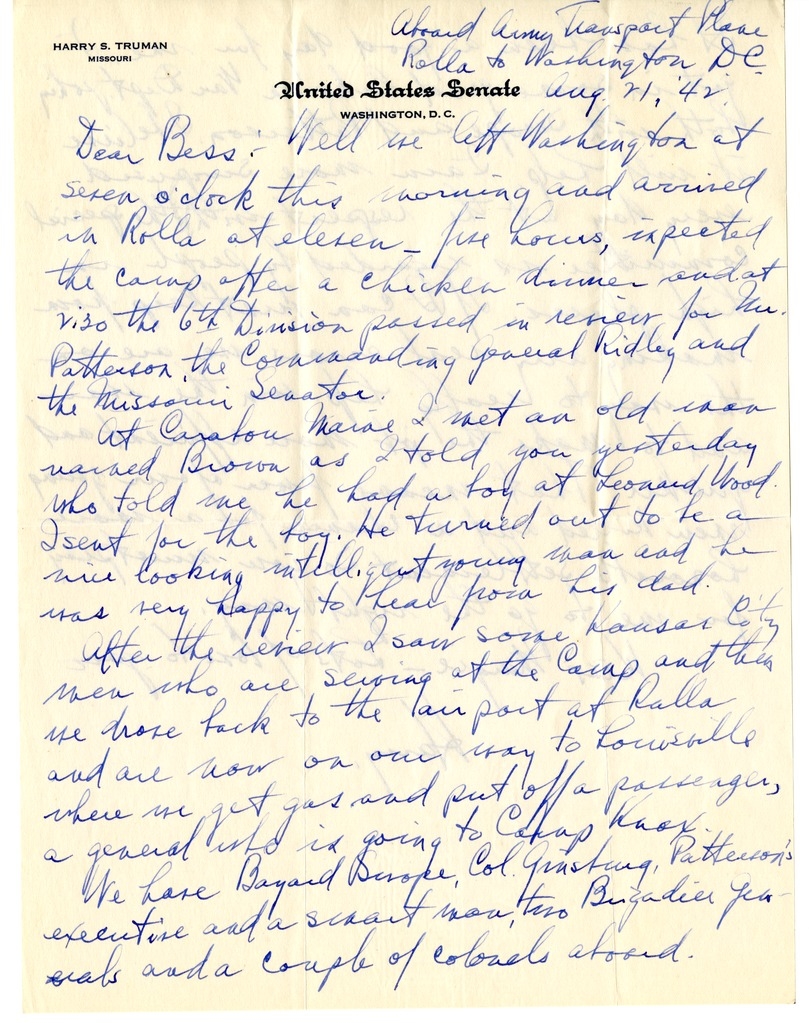 Aboard Army Transport Plane
HARRY S. TRUMAN
MISSOURI
Rolla to Washington DC
United States Senate
Aug 21, '42
WASHINGTON, D. C.
Dear Bess:- Well we left Washington at
seven o'clock this morning and arrived
in Rolla at eleven – five hours, inpected
the camp after a chicken dinner and at
2:30 the 6th Division passed in review for Mr.
Patterson, the Commanding General Ridley and
the Missouri Senator.
At Caribou Maine I met an old man
named Brown as I told you yesterday
who told me he had a boy at Leonard Wood.
I sent for the boy. He turned out to be a
nice looking intelligent young man and he
was very happy to hear from his dad.
After the review I saw some Kansas City
men who are serving at the Camp and then
we drove back to the airport at Rolla
and are now on our way to Louisville
where we get gas and put off a passenger,
a general who is going to Camp Knox.
We have Bayard Col. Ginsburg, Patterson's
executive and a smart man, two Brigadier Gen-
erals and a couple of colonels aboard.